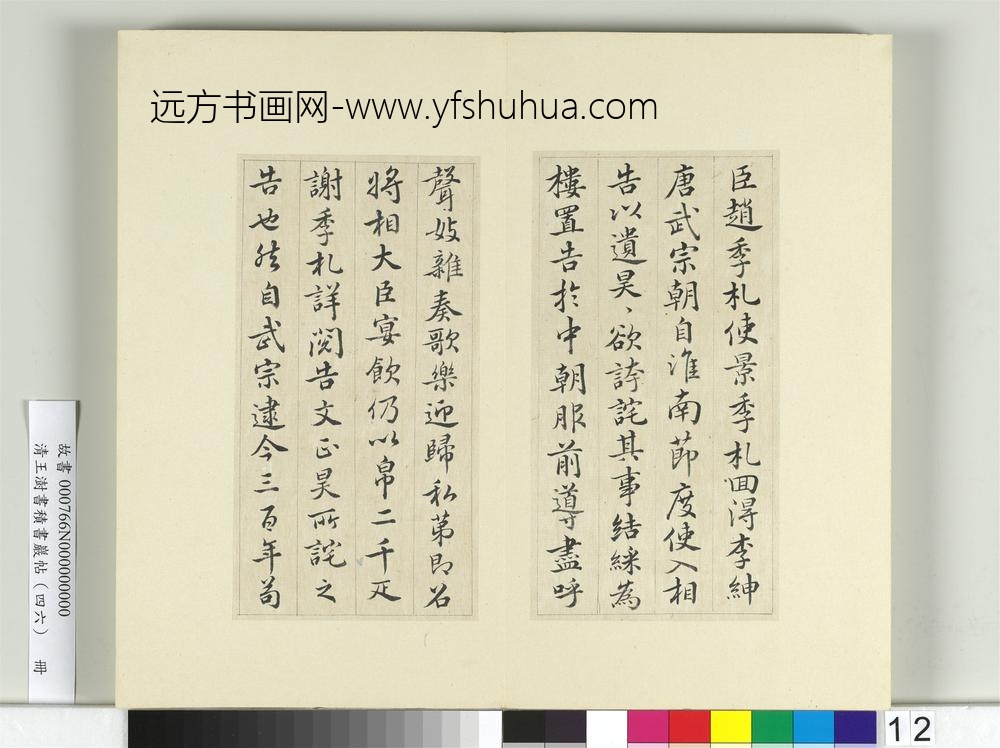 远方书画网-www.yfshuhua.com
臣趙季札使景季札回得李紳
唐武宗朝自淮南節度使入相
告以遺昊、欲誇詫其事結綵為
樓置告於中朝服前導盡呼
聲妓雜奏歌樂迎歸私苐即召
將相大臣宴飲仍以帛二千疋
謝季札詳閱告文正昊所詫之
告也然自武宗逮今三百年苟
故書 000766N000000000
清王澍書積書巖帖（四六） 冊
12